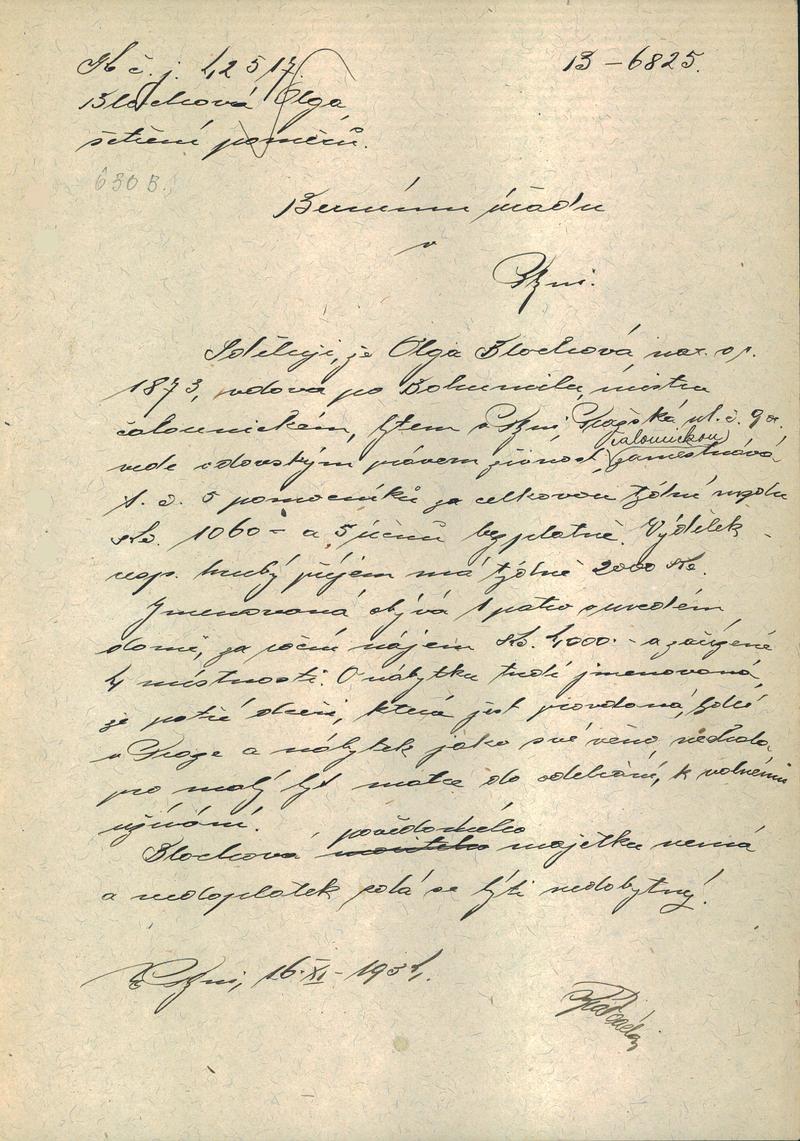 K č. j. 42517. B – 6825.
Blochová Olga
šetření poměrů.
630 B.
Bernímu úřadu
v
Plzni.
Sděluji, že Olga Blochová, nar. v r.
1873, vdova po Bohumilu, mistru
čalounickém, bytem v Plzni, Pražská ul. č. 9
vede vdovským právem živnost čalounickou, zaměstnává
t. č. 5 pomocníků za celkovou týdní mzdu
Kč. 1060 – a 5 učňů bezplatně. Výdělek
resp. hrubý příjem má týdně 2000 Kč.
Jmenovaná obývá 1 patro v uvedém
domě, za roční nájem Kč. 4000.– a zařízené
4 místnosti. O nábytku tvrdí jmenovaná,
že patří dceři, která jest provdaná, bydlí
v Praze a nábytek jako své věno, nechala
pro malý byt matce do odebrání, k volnému
užívání.
Blochová povědomého majetku nemá
a nedoplatek zdá se býti nedobytný.
V Plzni, 16. XI. – 1934.